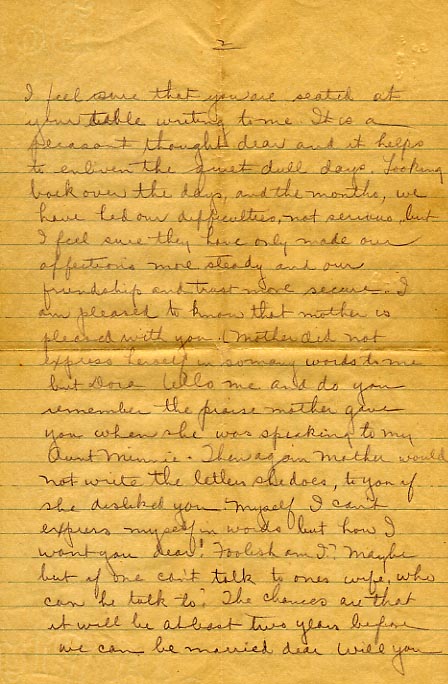 2
I feel sure that you are seated at
your table writing to me. It is a
pleasant thought dear and it helps
to enliven the quiet dull days. Looking
back over the days, and the months, we
have had our difficulties, not serious, but
I feel sure they have only made our
affections more steady and our
friendship and trust more secure. I
am pleased to know that mother is
pleased with you. (Mother did not
express herself in so many words to me
but Dora tells me and do you
remember the praise mother gave
you when she was speaking to my
Aunt Minnie. Then again Mother would
not write the letters she does, to you if
she disliked you. Myself I can't
express myself in words but how I
want you dear! Foolish am I? Maybe
but if one can't talk to ones wife, who
can he talk to? The chances are that
it will be at least two years before
we can be married dear will you